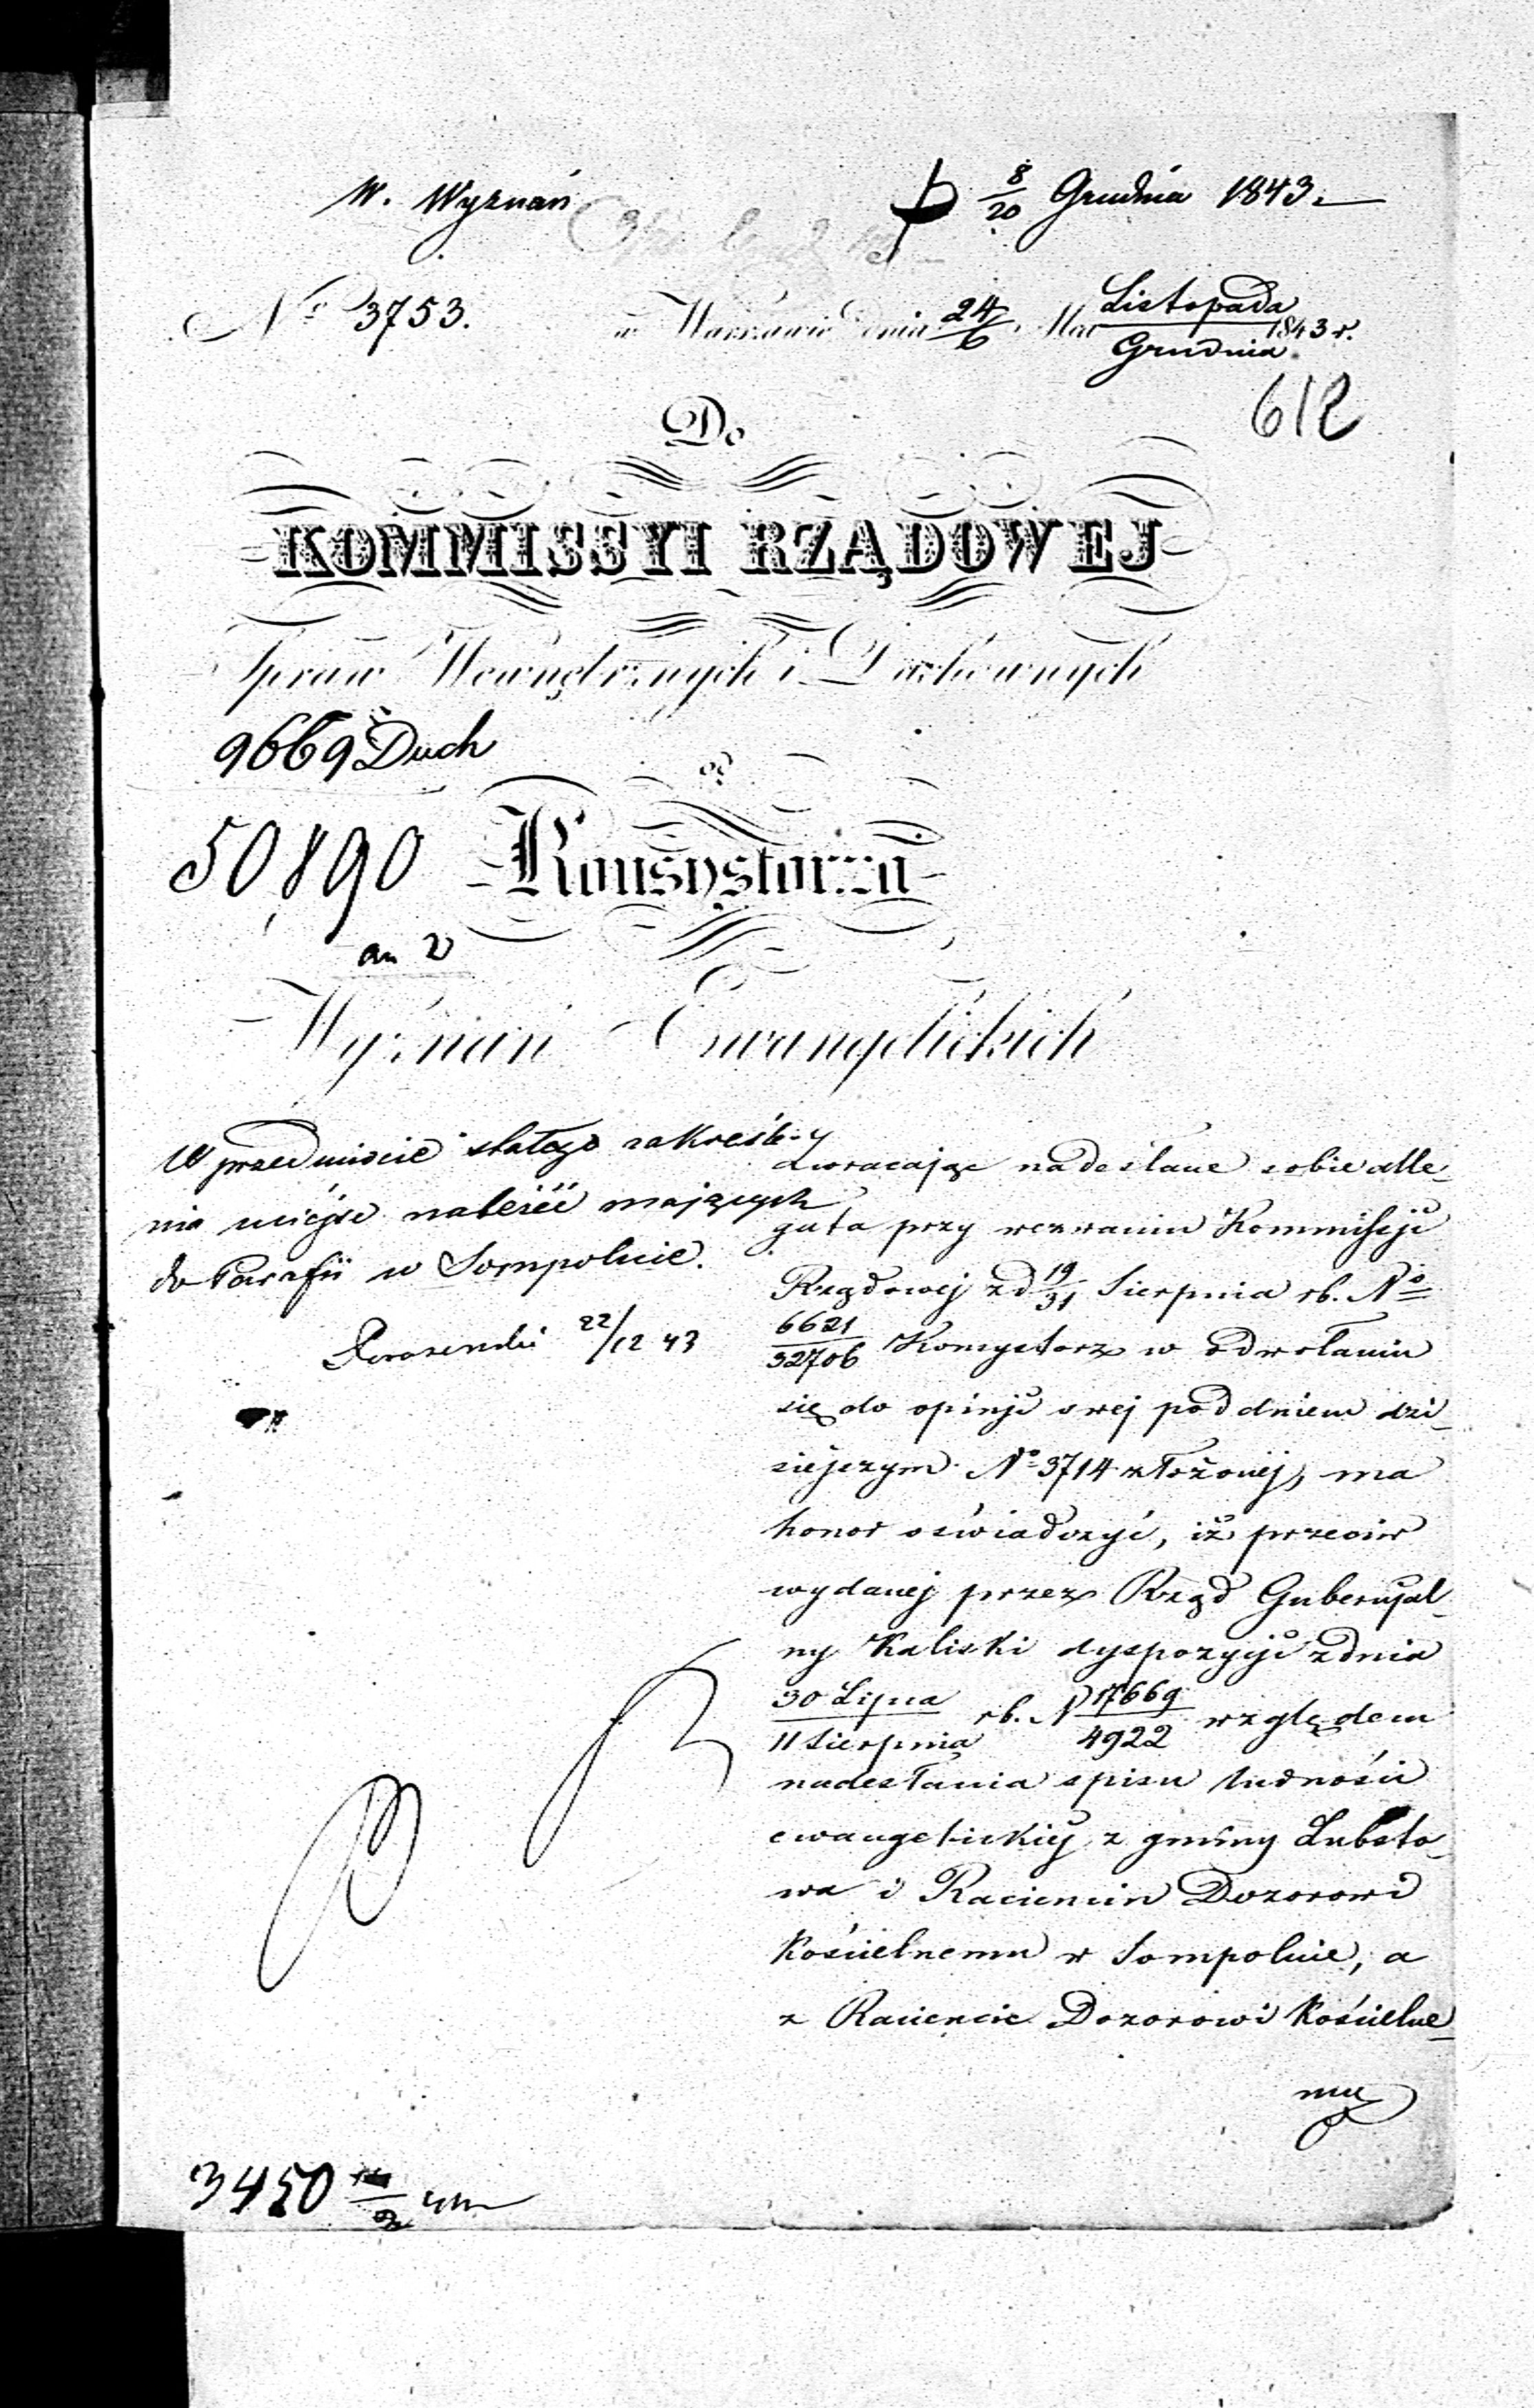 W. Wyznań
8/20 Grudnia 1843.
No 3753.
w Warszawie dnia 24/6 Mca Listopada/Grudnia 1843 r.
612
Do
KOMMISSYI RZĄDOWEJ
Spraw Wewnętrznych i Duchownych
9669 Duch
50,890
an 2
od
Konsystorza
Wyznań Ewangelickich
W przedmiocie stałego zakreśle-
nia miejsc należéć mających
do Parafii w Sompolnie.
22/12 43
Zwracając nadesłane sobie alle-
gata przy wezwaniu Kommissji
Rządowej z d 19/31 Sierpnia rb. No
6621/32706 Konsystorz w odwołaniu
się do opinji swej pod dniem dzi-
siejszym No 3714 złożonej, ma
honor oświadczyć, iż przeciw
wydanej przez Rząd Gubernjal-
ny Kaliski dyspozycji z dnia
30 Lipca/11 Sierpnia rb. N 17669/4922 względem
nadesłania spisu ludności
ewangelickiej z gminy Lubsto-
wa i Raciencin Dozorowi
Kościelnemu w Sompolnie, a
z Raciencie Dozorowi Kościelne-
mu
3450